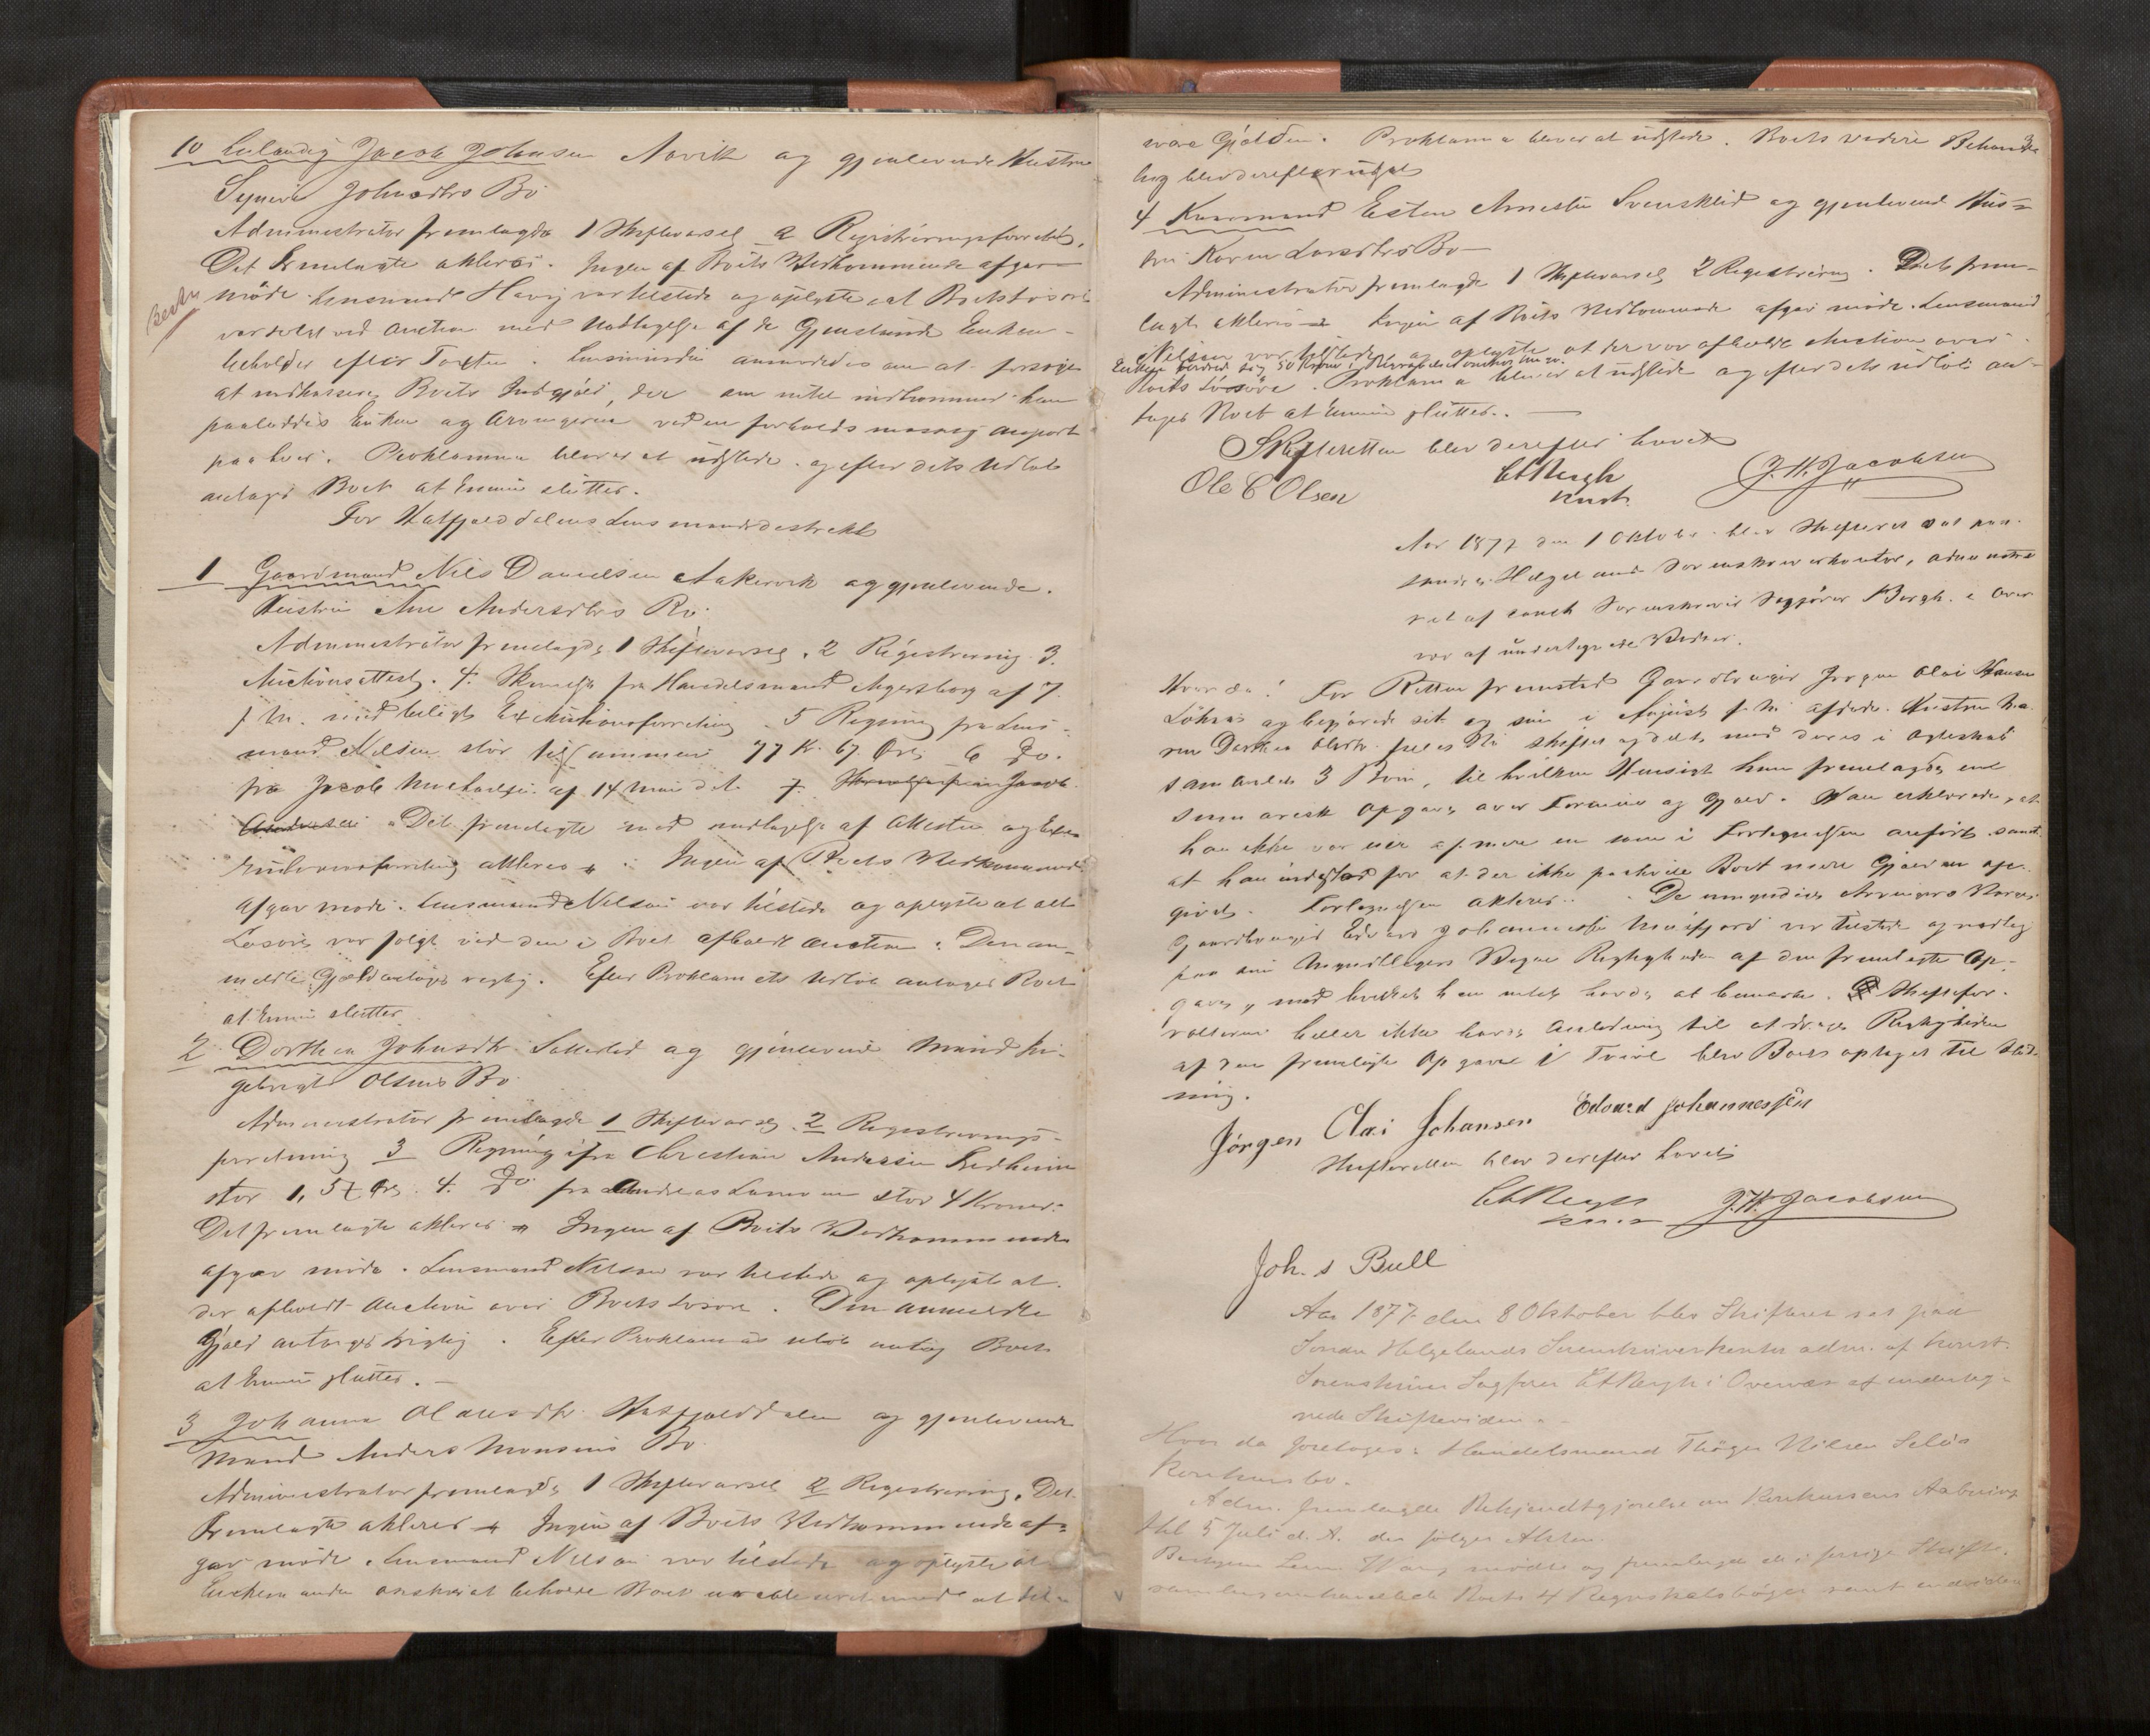 10 Leilænding Jacob Johnsen Navik og gjenlevende Hustru
Johnsdtrs Bo
Administrator fremlagde 1 Skiftevarsel 2 Registreringsforretn.
Det fremlagte akteres. Ingen af Boets Vedkommende afgav
møde. Lensmand Havig var tilstede og oplyste at Boets Løsøre
var solgt ved Auction med Undtagelse af de Gjenstande Enken
beholder efter Taxten. Lensmanden anmodedes om at forsøge
at indkassere Boets Indgjæld, der om intet indkommer kan
Enken og Arvingerne ved en forholdsmæssig
paa hver. Proklamma bliver at udstede og efter dets Udløb
antages Boet at kunne sluttes.
For Hatfjelddalens Lensmandsdistrikt
1 Gaardmand Nils Danielsen Aakervik og gjenlevende
Hustru Ane Andersdtrs Bo.
Administrator fremlagde 1 Skiftevarsel, 2 Registrering 3.
Auctionsattest. 4. Skrivelse fra Handelsmand af 7.
f. M. med beilagt Executionsforretning 5 Regning fra Lens-
mand Nilsen stor tilsammen 77 Kr. 67 Øre, 6 Do.
fra Jacob af 14 Mai d. A. 7. Skrivelse fra Jacob
Det fremlagte med undtagelse af Attesten og Exe-
akteres. Ingen af Boets Vedkommende
afgav møde. Lensmand Nilsen var tilstede og oplyste at alt
Løsøre var solgt ved den i Boet afholdt Auction. Den an-
meldte Gjæld antages rigtig. Efter Proklamets Udløb antages Boet
at kunne sluttes
2 Dorthea Johnsdtr. og gjenlevende Mand In-
gebrigt Olsens Bo
Administrator fremlagde 1 Skiftevarsel. 2 Registrerings-
forretning 3 Regning ifra Christian Andersen
stor 1,57 Øre. 4. Do fra Andreas Larsen stor 4 Kroner.
Det fremlagte akteres. Ingen af Boets Vedkommende
afgav møde. Lensmand Nilsen var tilstede og oplyste at
der afholdt Auction over Boets Løsøre. Den anmeldte
Gjæld antages rigtig. Efter Proklamas Udløb antog Boet
at kunne sluttes.
3 Johanna Olausdtr. Hatfjelddalen og gjenlevende
Mand Anders Monsens Bo.
Administrator fremlagde 1 Skiftevarsel 2 Registrering. Det
fremlagte akteres. Ingen af Boets Vedkommende af-
gav møde. Lensmand Nilsen var tilstede og oplyste at
Enkemanden ønsker at beholde Boet mod at
svare Gjælden. Proklamma bliver at udstede. Boets videre Behand-
ling blev derefter udsat
3
4 Kaarmand Esten Arnesen og gjenlevende Hus-
tru Karen Larsdtrs Bo
Administrator fremlagde 1 Skiftevarsel 2 Registrering. Det frem-
lagte akteres. Ingen af Boets Vedkommende afgav møde. Lensmand
Nilsen var tilstede og oplyste at der var afholdt Auction over
Enken sig 50 Kroner i
Boets Løsøre. Proklama bliver at udstede og efter dets udløb an-
tages Boet at kunne sluttes.
Skifteretten blev derefter hævet
Ole C Olsen
Et Bergh
konst.
J. H. Jacobsen
Aar 1877 den 1 Oktober blev Skifteret sat paa
Søndre Helgelands Sorenskriverkontor, administre
ret af const Sorenskriver Sagfører Bergh. i Over
vær af undertegnede Vidner.
Hvor da! For Retten fremstod Gaardbruger Jørgen Olai Hansen
og begjærede sit og sin i August f. M. afdøde Hustru Ma-
ren Olsdtr. Bo skiftet og delt med deres i Ægteskab
sammen avlede 3 Børn, til hvilken Hensigt han fremlagde en
summarisk Opgave over Formue og Gjæld. Han erklærede, at
han ikke var eier af mere en som i Fortegnelsen anført samt
at han indestod for at der ikke paahviler Boet mere Gjæld en op-
givet. Fortegnelsen akteres. De umyndiges Arvingers Værge
Gaardbruger Edvard Johannessen var tilstede og vedtog
paa sine Myndlingers Vegne Rigtigheden af den fremlagte Op-
gave, mod hvilket han intet havde at bemærke. Skiftefor-
valteren heller ikke havde Anledning til at drage Rigtigheden
af den fremlagte Opgave i Tvivl blev Boet optaget til Slut-
ning.
Jørgen Olai Johansen Edvard Johannessen
Skifteretten blev derefter hævet
Et Bergh
konst
J. H. Jacobsen
Joh. s Bull
Aar 1877 den 8 Oktober blev Skifteret sat paa
Søndre Helgelands Sorenskriverkontor adm. af konst.
Sorenskriver Sagfører Et Bergh i Overvær af underteg-
nede Skiftevidner.
Hvor da foretoges: Handelsmand Thøger Nilsen Seløs
Konkursbo.
Adm. fremlagde Bekjendtgjørelse om Konkursens Aabning
5 Juli d. A. der følger Akten.
Lensm. Wang mødte og fremlagde de i forrige Skifte-
samling omhandlede Boets 4 Regnskabsbøger samt